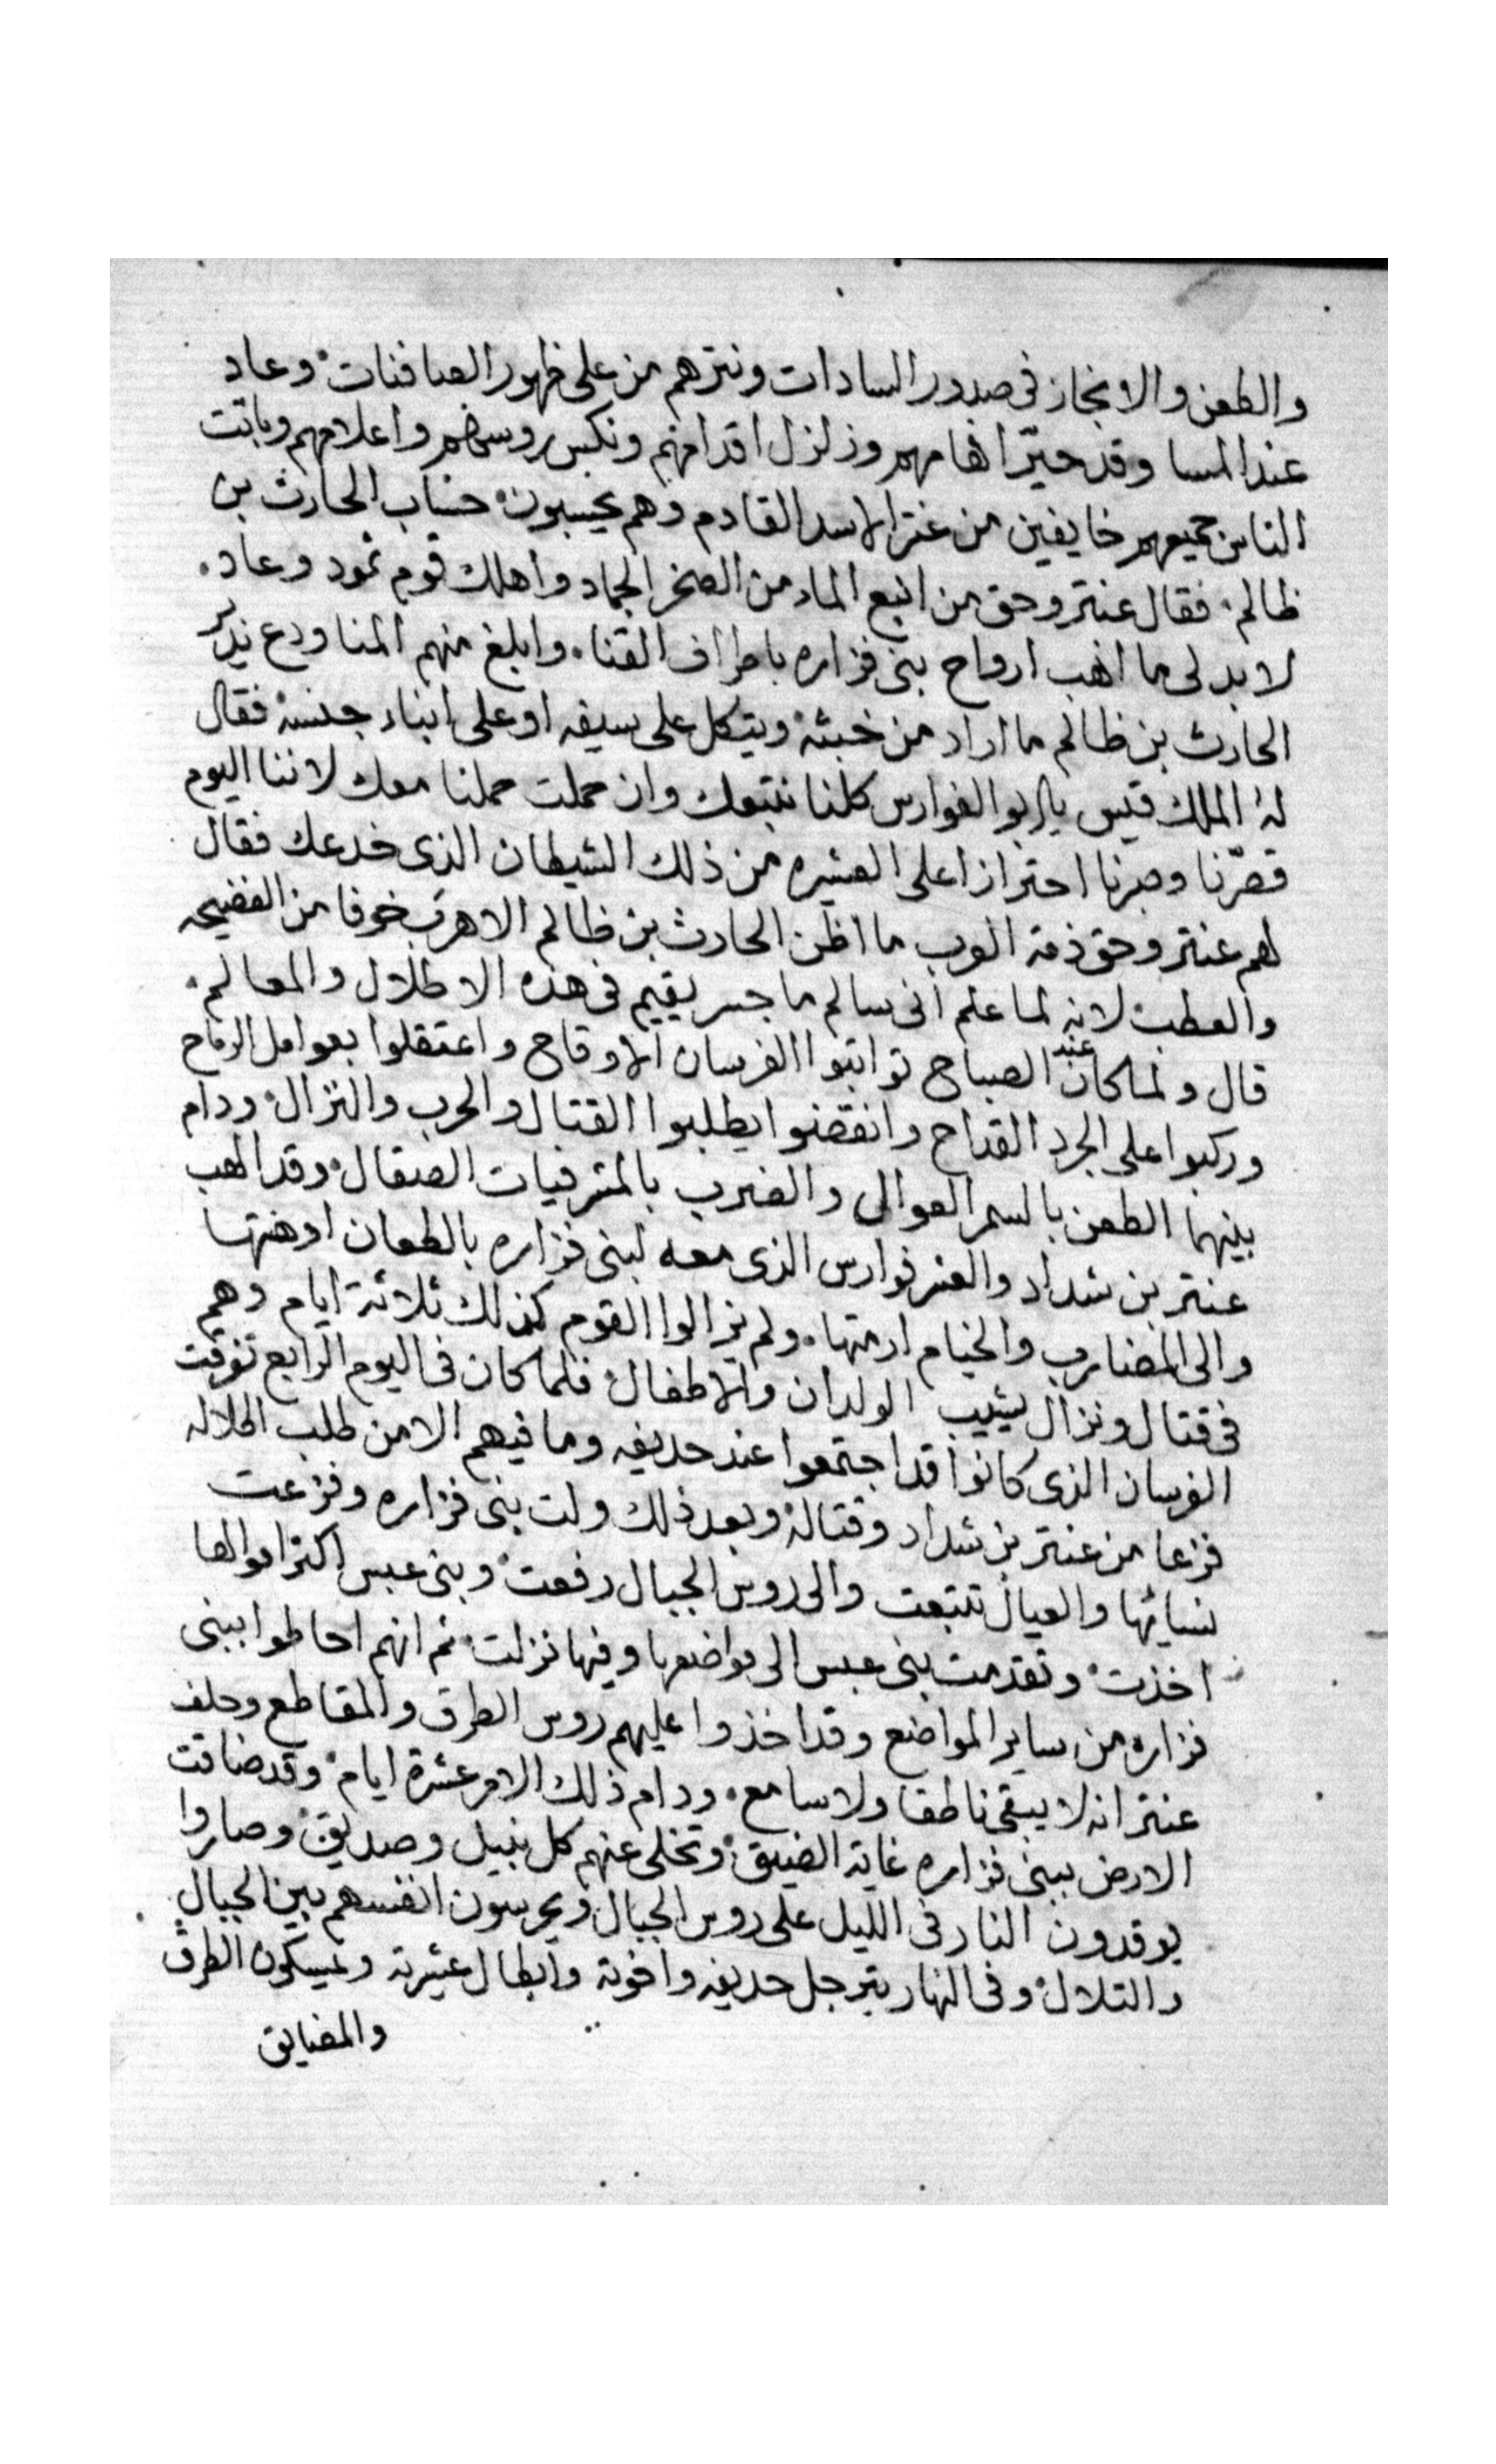 والطعن والانجاز فى صدور السادات ونترهم من على ظهور الصافنات وعاد
عند المسا وقد حيّر افهامهم وزلزل اقدامهم ونكس روسهم واعلامهم وباتت
الناس جميعهم خايفين من عنتر الاسد القادم وهم يحسبون حساب الحارث بن
ظالم فقال عنتر وحق من انبع الماء من الصخر الجماد واهلك قوم ثمود وعاد
لا بد لى ما انهب ارواح بنى فزاره باطراف القنا وابلغ منهم المنا ودع يدبر
الحارث بن ظالم ما اراد من خبثه ويتكل على سيفه او على ابناء جنسه فقال
له الملك قيس يا ابو الفوارس كلنا نتبعك وان حملت حملنا معك لاننا اليوم
قصّرنا وصرنا احترازا على العشيره من ذلك الشيطان الذى خدعك فقال
لهم عنتر وحق ذمة العرب ما اظن الحارث بن ظالم الا هرب خوفا من الفضيحه
والعطب لانه لما علم انى سالم ما جسر يقيم فى هذه الاطلال والمعالم
قال ولما كان عند الصباح تواثبوا الفرسان الاوقاح واعتقلوا بعوامل الرماح
وركبوا على الجرد القداح وانفضوا يطلبوا القتال والحرب والنزال ودام
بينهما الطعن بالسمر العوالى والضرب بالمشرفيات الصقال وقد الهب
عنتر بن شداد والعشر فوارس الذى معه لبنى فزاره بالطعان اوهنتها
والى المضارب والخيام ارمتها ولم يزالوا القوم كذلك ثلاثة ايام وهم
فى قتال ونزال يشيب الولدان والاطفال فلما كان فى اليوم الرابع تفرقت
الفرسان الذى كانوا قد اجتمعوا عند حديفه وما فيهم الا من طلب الحلاله
فزعا من عنتر بن شداد وقتاله وبعد ذلك ولت بنى فزاره وفزعت
نسائها والعيال تتبعت والى روس الجبال رفعت وبنى عبس اكثر اموالها
اخذت وتقدمت بنى عبس الى مواضعها وفيها نزلت ثم انهم احاطوا ببنى
فزاره من ساير المواضع وقد اخذوا عليهم روس الطرق والمقاطع وحلف
عنتر انه لا يبقى ناطقا ولا سامع ودام ذلك الامر عشرة ايام وقد ضاقت
الارض ببنى فزاره غاية الضيق وتخلى عنهم كل نبيل وصديق وصاروا
يوقدون النار فى الليل على روس الجبال ويحرسون انفسهم بين الجبال
والتلال وفى النهار يترجل حديفه واخوته وابطال عشيرته ويمسكون الطرق
والمضايق